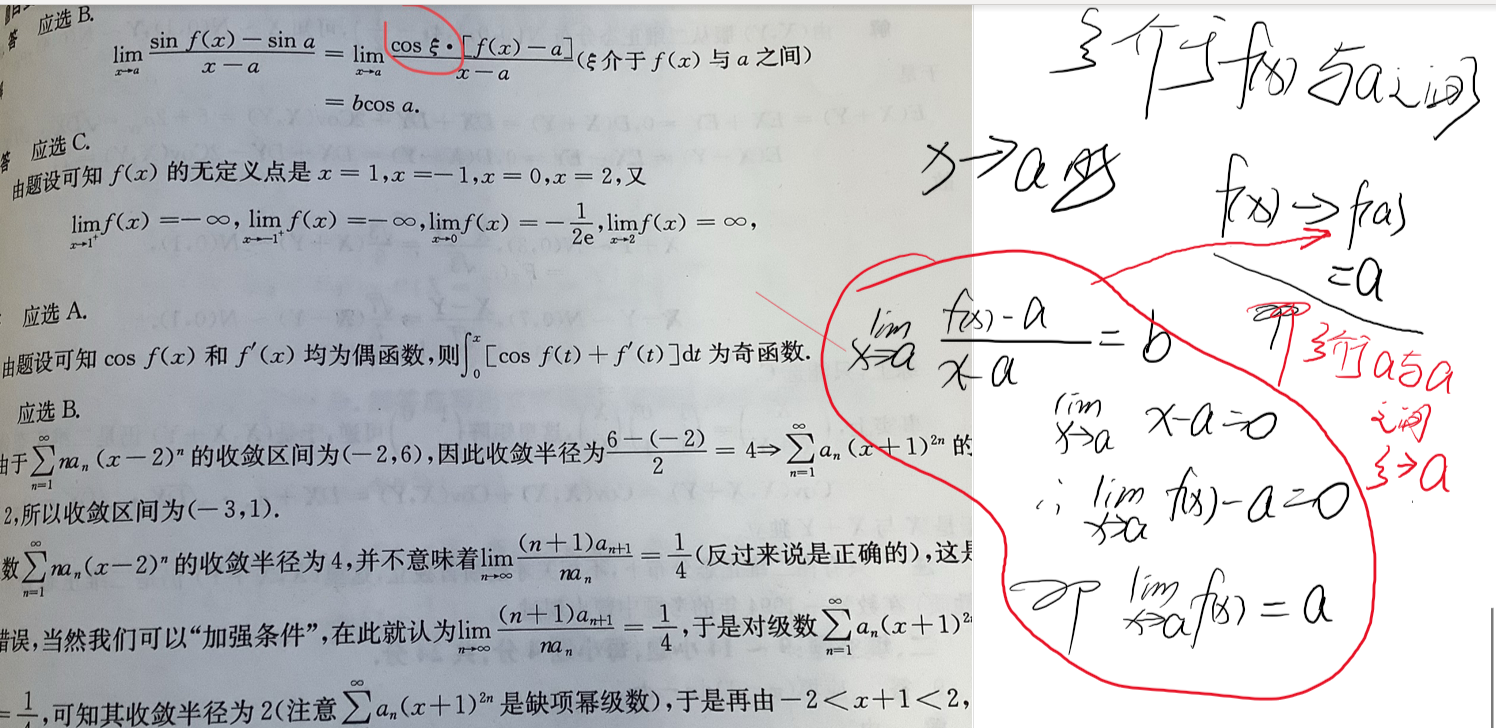 应选 B.
答
lim x→a (sin f(x) − sin a)/(x − a) = lim x→a (cos ξ · [f(x) − a])/(x − a) (ξ 介于 f(x) 与 a 之间)
= bcos a.
应选 C.
答
由题设可知 f(x) 的无定义点是 x = 1, x = −1, x = 0, x = 2, 又
lim x→1⁺ f(x) = −∞, lim x→−1⁺ f(x) = −∞, lim x→0 f(x) = −1/2e, lim x→2 f(x) = ∞,
应选 A.
由题设可知 cos f(x) 和 f′(x) 均为偶函数, 则 ∫₀ˣ [cos f(t) + f′(t)]dt 为奇函数.
应选 B.
由于 ∑ n=1 ∞ naₙ(x−2)ⁿ 的收敛区间为(−2,6), 因此收敛半径为 (6−(−2))/2 = 4 ⇒ ∑ n=1 ∞ aₙ(x+1)²ⁿ 的
2, 所以收敛区间为(−3,1).
数 ∑ n=1 ∞ naₙ(x−2)ⁿ 的收敛半径为 4, 并不意味着 lim n→∞ (n+1)aₙ₊₁/naₙ = 1/4 (反过来说是正确的), 这是
错误, 当然我们可以“加强条件”, 在此就认为 lim n→∞ (n+1)aₙ₊₁/naₙ = 1/4, 于是对级数 ∑ n=1 ∞ aₙ(x+1)²
= 1/4, 可知其收敛半径为 2(注意 ∑ aₙ(x+1)²ⁿ 是缺项幂级数), 于是再由 −2 < x+1 < 2,
ξ 介于 f(x) 与 a 之间
x→a 时
f(x) → f(a)
= a
lim x→a (f(x)−a)/(x−a) = b
即 ξ介于 a与a
之间
ξ→a
lim x→a x−a=0
∴ lim x→a f(x)−a=0
即 lim x→a f(x) = a